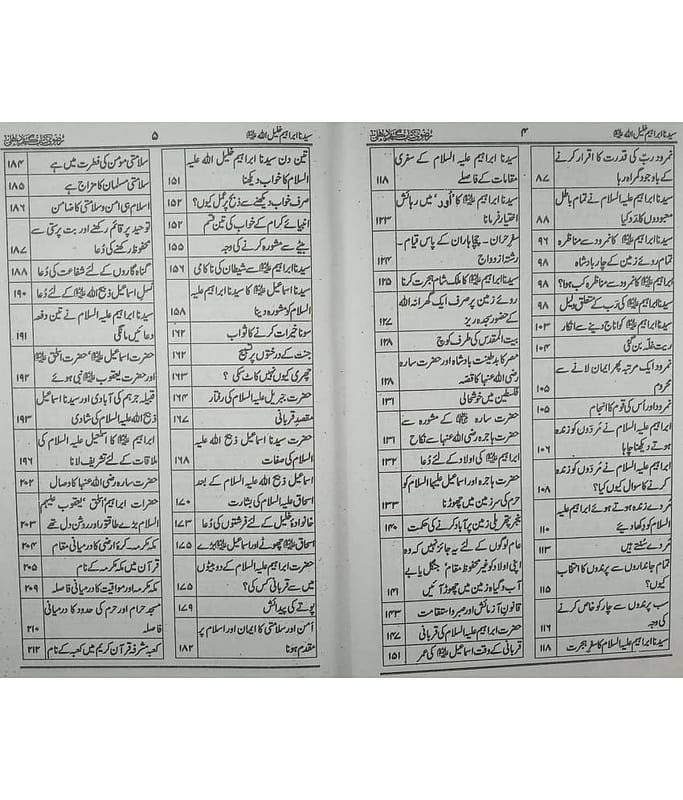 سیدنا ابراہیم خلیل اللہ ﷺ ۴
نمرود ربّ کی قدرت کا اقرار کرنے
کے باوجود گمراہ رہا ۸۷
سیدنا ابراہیم علیہ السلام نے تمام باطل
معبودوں کا رد کیا ۸۸
سیدنا ابراہیم ﷺ کا نمرود سے مناظرہ ۹۶
تمام روئے زمین کے چار بادشاہ ۹۸
ابراہیم ﷺ کا نمرود سے مناظرہ کب ہوا؟ ۹۸
سیدنا ابراہیم ﷺ کی ربّ کے متعلق دلیل ۹۸
سیدنا ابراہیم ﷺ کو اناج دینے سے انکار ۱۰۳
ریت غلہ بن گئی ۱۰۴
نمرود ایک مرتبہ پھر ایمان لانے سے
محروم ۱۰۵
نمرود اور اس کی قوم کا انجام ۱۰۵
سیدنا ابراہیم علیہ السلام نے مُردوں کو زندہ
ہوتے دیکھنا چاہا ۱۰۶
ابراہیم علیہ السلام نے مُردوں کو زندہ
کرنے کا سوال کیوں کیا؟ ۱۰۸
مُردے زندہ ہوتے ہوئے ابراہیم علیہ
السلام کو دکھا دیئے ۱۱۰
مُردے سُنتے ہیں ۱۱۳
تمام جانداروں سے پرندوں کا انتخاب
کیوں؟ ۱۱۵
سب پرندوں سے چار کو خاص کرنے
کی وجہ ۱۱۶
سیدنا ابراہیم علیہ السلام کا سفرِ ہجرت ۱۱۸
سیدنا ابراہیم علیہ السلام کے سفری
مقامات کے فاصلے ۱۱۸
سیدنا ابراہیم ﷺ کا 'اُور' میں رہائش
اختیار فرمانا ۱۲۳
سفرِ حران - چچا ہاران کے پاس قیام -
رشتہ ازدواج ۱۲۴
سیدنا ابراہیم ﷺ کا ملک شام ہجرت کرنا ۱۲۵
روئے زمین پر صرف ایک گھرانہ اللہ
کے حضور سجدہ ریز ۱۲۷
بیت المقدس کی طرف کوچ ۱۲۸
مصر کا بدطینت بادشاہ اور حضرت سارہ
رضی اللہ عنہا کا قصہ ۱۲۸
فلسطین میں خوشحالی ۱۳۱
حضرت سارہ ﷺ کے مشورہ سے
حضرت ہاجرہ رضی اللہ عنہا سے نکاح ۱۳۱
ابراہیم ﷺ کی اولاد کے لئے دُعا ۱۳۲
حضرت ہاجرہ اور اسماعیل علیہما السلام کو
حرم کی سرزمین میں چھوڑنا ۱۳۳
بنجر پتھریلی زمین پر آباد کرنے کی حکمت ۱۴۰
عام لوگوں کے لئے یہ جائز نہیں کہ وہ
اپنی اولاد کو غیر محفوظ مقام' جنگل یا بے
آب و گیاہ زمین میں چھوڑ آئیں ۱۴۱
قانونِ آزمائش اور صبر و استقامت ۱۴۳
حضرت ابراہیم علیہ السلام کی قربانی ۱۴۷
قربانی کے وقت اسماعیل ﷺ کی عمر ۱۵۱
سیدنا ابراہیم خلیل اللہ ﷺ ۵
تین دن سیدنا ابراہیم خلیل اللہ علیہ
السلام کا خواب دیکھنا ۱۵۱
صرف خواب دیکھنے سے ذبح پر عمل کیوں؟ ۱۵۲
انبیائے کرام کے خواب کی تین قسم ۱۵۲
بیٹے سے مشورہ کرنے کی وجہ ۱۵۵
سیدنا ابراہیم ﷺ سے شیطان کی ناکامی ۱۵۶
سیدنا اسماعیل ﷺ کا سیدنا ابراہیم علیہ
السلام کو مشورہ دینا ۱۵۸
سونا خیرات کرنے کا ثواب ۱۶۲
جنت کے درختوں پر تسبیح ۱۶۲
چھری کیوں نہیں کاٹ سکی؟ ۱۶۳
حضرت جبریل علیہ السلام کی رفتار ۱۶۴
مقصدِ قربانی ۱۶۷
حضرت سیدنا اسماعیل ذبیح اللہ علیہ
السلام کی صفات ۱۶۸
اسماعیل ذبیح اللہ علیہ السلام کے بعد
اسحاق علیہ السلام کی بشارت ۱۷۰
خانوادۂ خلیل کے لئے فرشتوں کی دُعا ۱۷۳
اسحاق ﷺ چھوٹے اور اسماعیل ﷺ بڑے ۱۷۵
حضرت ابراہیم علیہ السلام کے دو بیٹوں
میں سے قربانی کس کی؟ ۱۷۵
پوتے کی پیدائش ۱۷۹
امن اور سلامتی کا ایمان اور اسلام پر
مقدم ہونا ۱۸۲
سلامتی مؤمن کی فطرت میں ہے ۱۸۴
سلامتی مسلمان کا مزاج ہے ۱۸۵
اسلام ہی امن و سلامتی کا ضامن ۱۸۶
توحید پر قائم رکھنے اور بت پرستی سے
محفوظ رکھنے کی دُعا ۱۸۷
گناہ گاروں کے لئے شفاعت کی دُعا ۱۸۸
نسلِ اسماعیل ذبیح اللہ ﷺ کے لئے دُعا ۱۹۰
سیدنا ابراہیم علیہ السلام نے تین دفعہ
دعائیں مانگی ۱۹۱
حضرت اسماعیل ﷺ' حضرت اسحٰق ﷺ
اور حضرت یعقوب ﷺ نبی ہوئے ۱۹۲
قبیلہ جرہم کی آبادی اور سیدنا اسماعیل
ذبیح اللہ علیہ السلام کی شادی ۱۹۳
ابراہیم ﷺ کا اسمٰعیل علیہ السلام کی
ملاقات کے لئے تشریف لانا ۱۹۶
حضرت سارہ رضی اللہ عنہا کا وصال ۲۰۲
حضرات ابراہیم' اسحٰق' یعقوب علیہم
السلام بڑے طاقتور اور روشن دل تھے ۲۰۳
مکہ مکرمہ کرۂ ارضی کا درمیانی مقام ۲۰۴
قرآن میں مکہ مکرمہ کے نام ۲۰۵
مکہ مکرمہ اور مواقیت کا درمیانی فاصلہ ۲۰۹
مسجد حرام اور حرم کی حدود کا درمیانی
فاصلہ ۲۱۰
کعبہ مشرفہ قرآن کریم میں کعبہ کے نام ۲۱۲